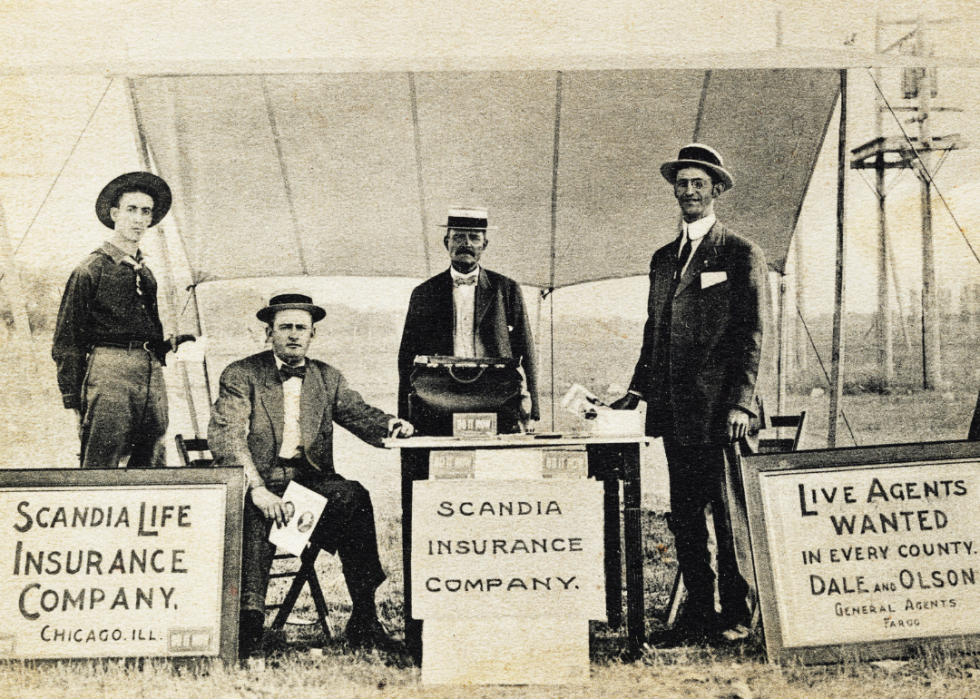 DO IT NOW
SCANDIA LIFE
INSURANCE
COMPANY.
CHICAGO. ILL.
SCANDIA
INSURANCE
COMPANY.
LIVE AGENTS
WANTED
IN EVERY COUNTY.
DALE AND OLSON
GENERAL AGENTS
FARGO